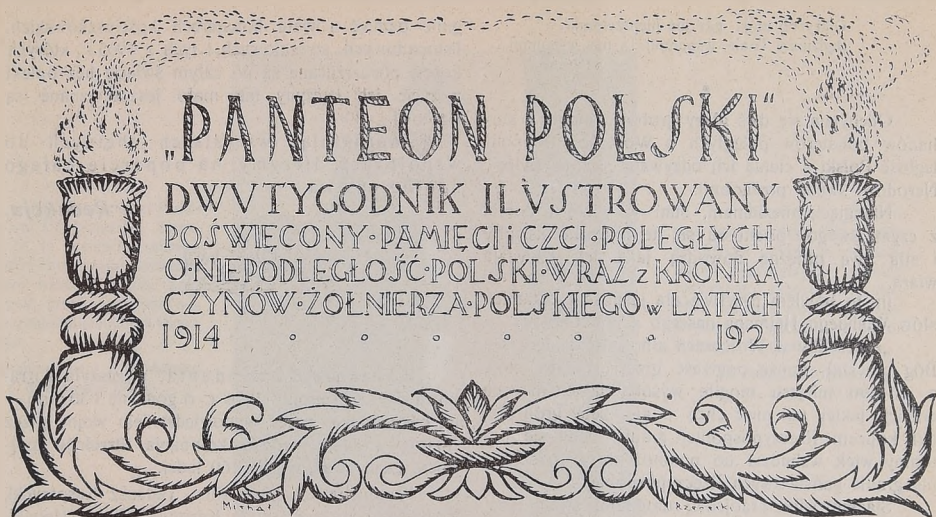 „PANTEON POLSKI“
DWVTYGODNIK ILVSTROWANY
POŚWIĘCONY·PAMIĘCI i CZCI·POLEGŁYCH
O·NIEPODLEGŁOŚĆ·POLSKI·WRAZ z KRONIKĄ
CZYNÓW·ŻOŁNIERZA·POLSKIEGO w LATACH
1914 · · · · · · 1921
Michał